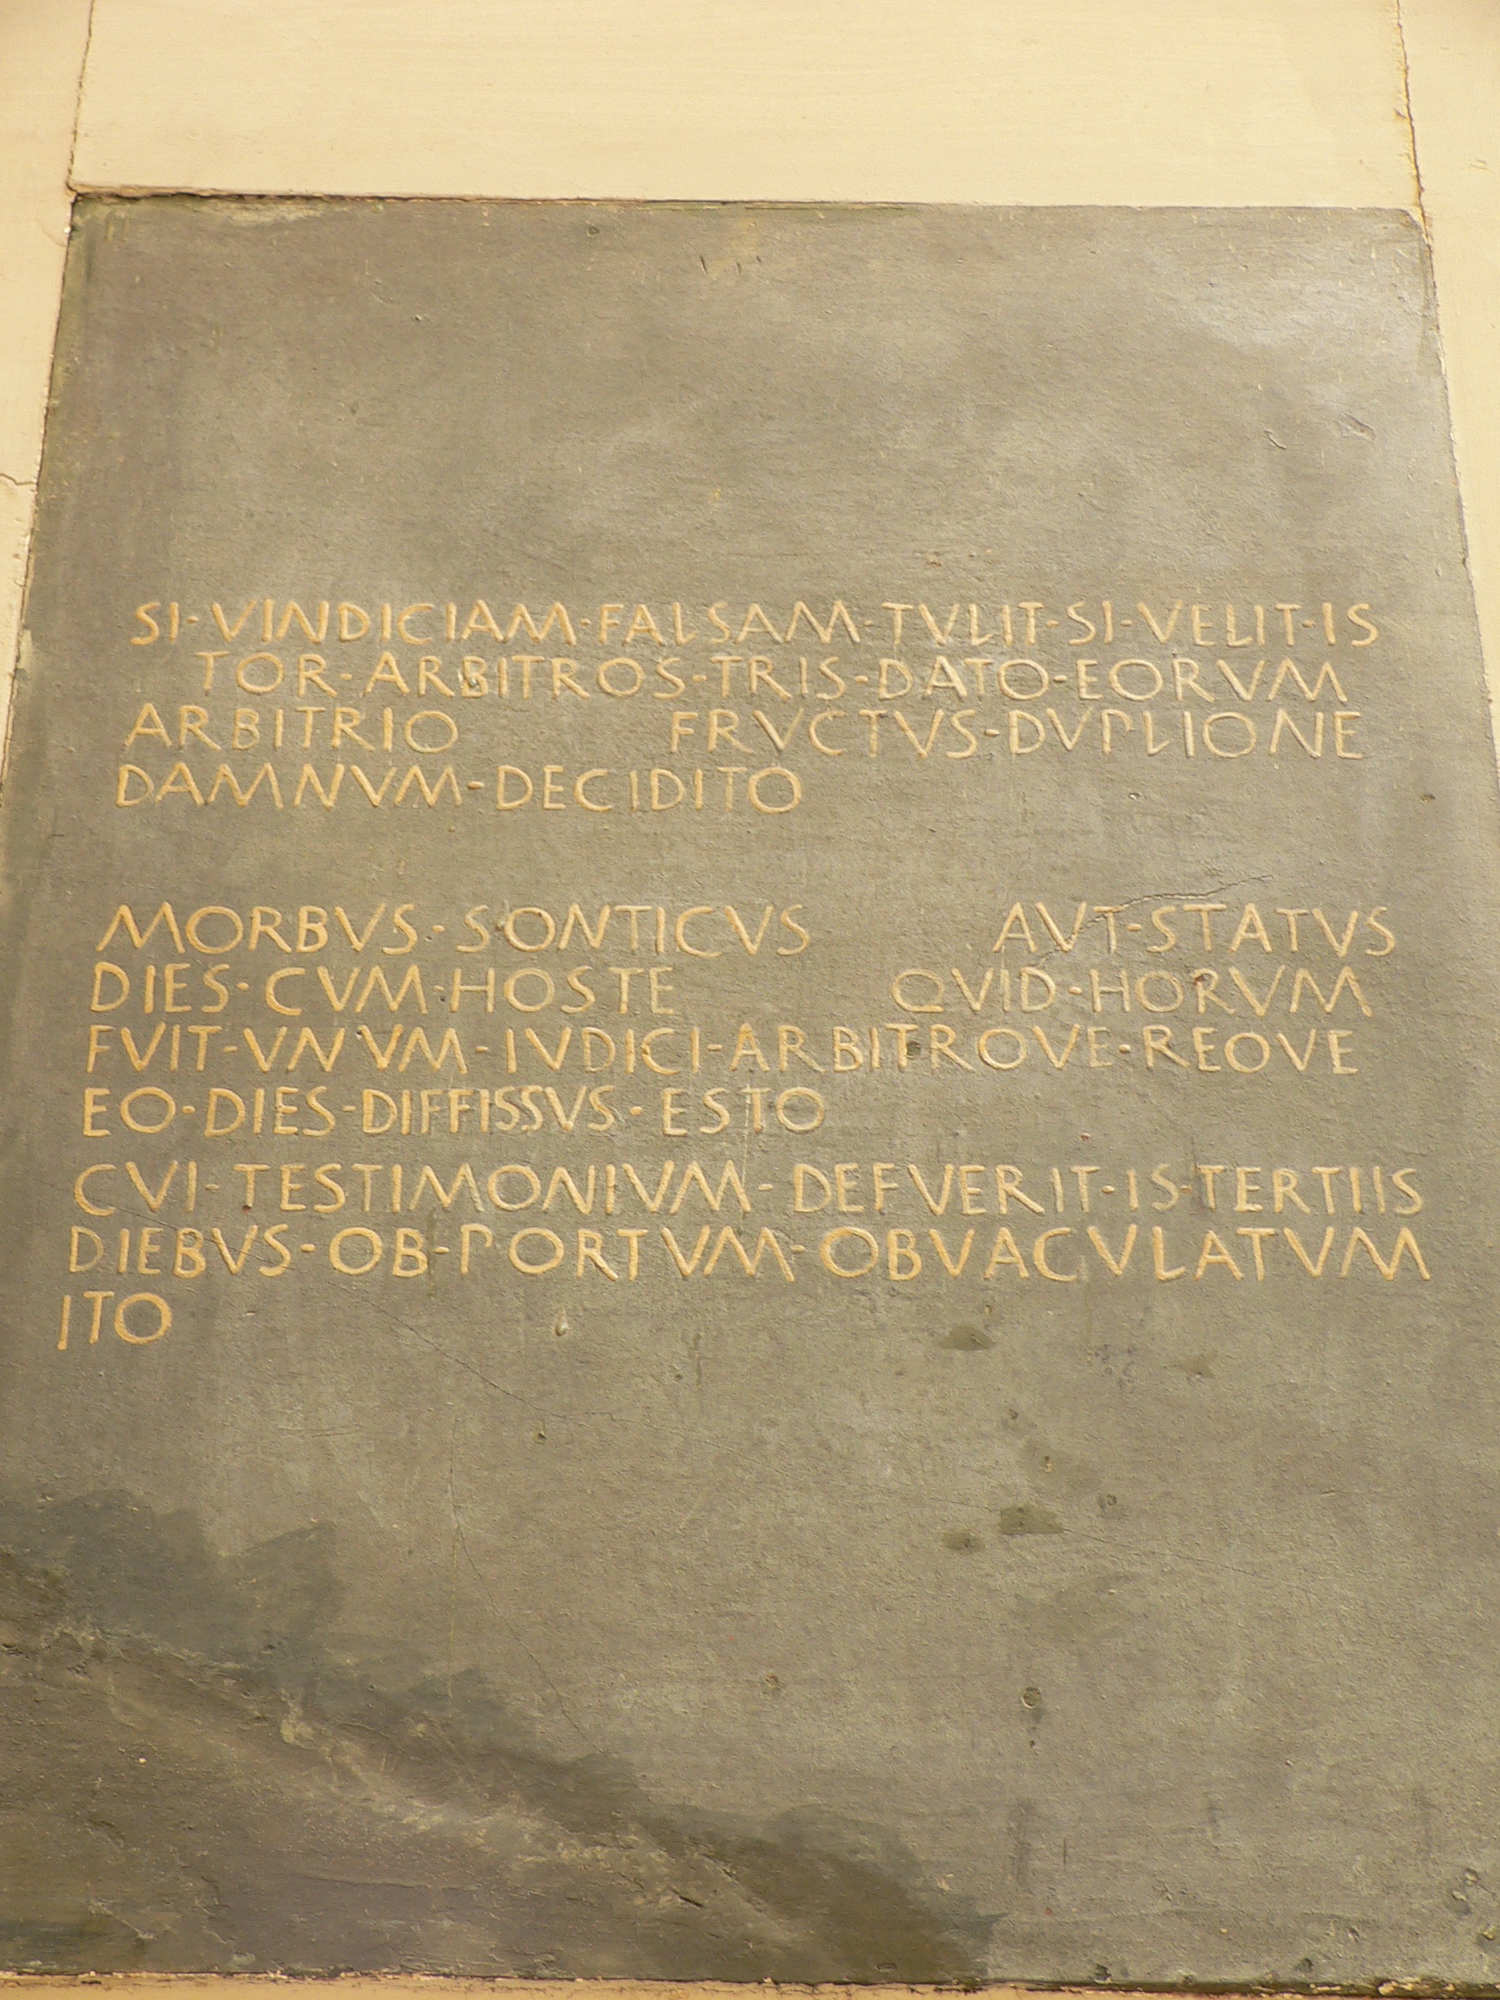 SI·VINDICIAM·FALSAM·TVLIT·SI·VELIT·IS
TOR·ARBITROS·TRIS·DATO·EORVM
ARBITRIO FRVCTVS·DVPLIONE
DAMNVM·DECIDITO
MORBVS·SONTICVS AVT·STATVS
DIES·CVM·HOSTE QVID·HORVM
FVIT·VNVM·IVDICI·ARBITROVE·REOVE
EO·DIES·DIFFISSVS·ESTO
CVI·TESTIMONIVM·DEFVERIT·IS·TERTIIS
DIEBVS·OB·PORTVM·OBVACVLATVM
ITO